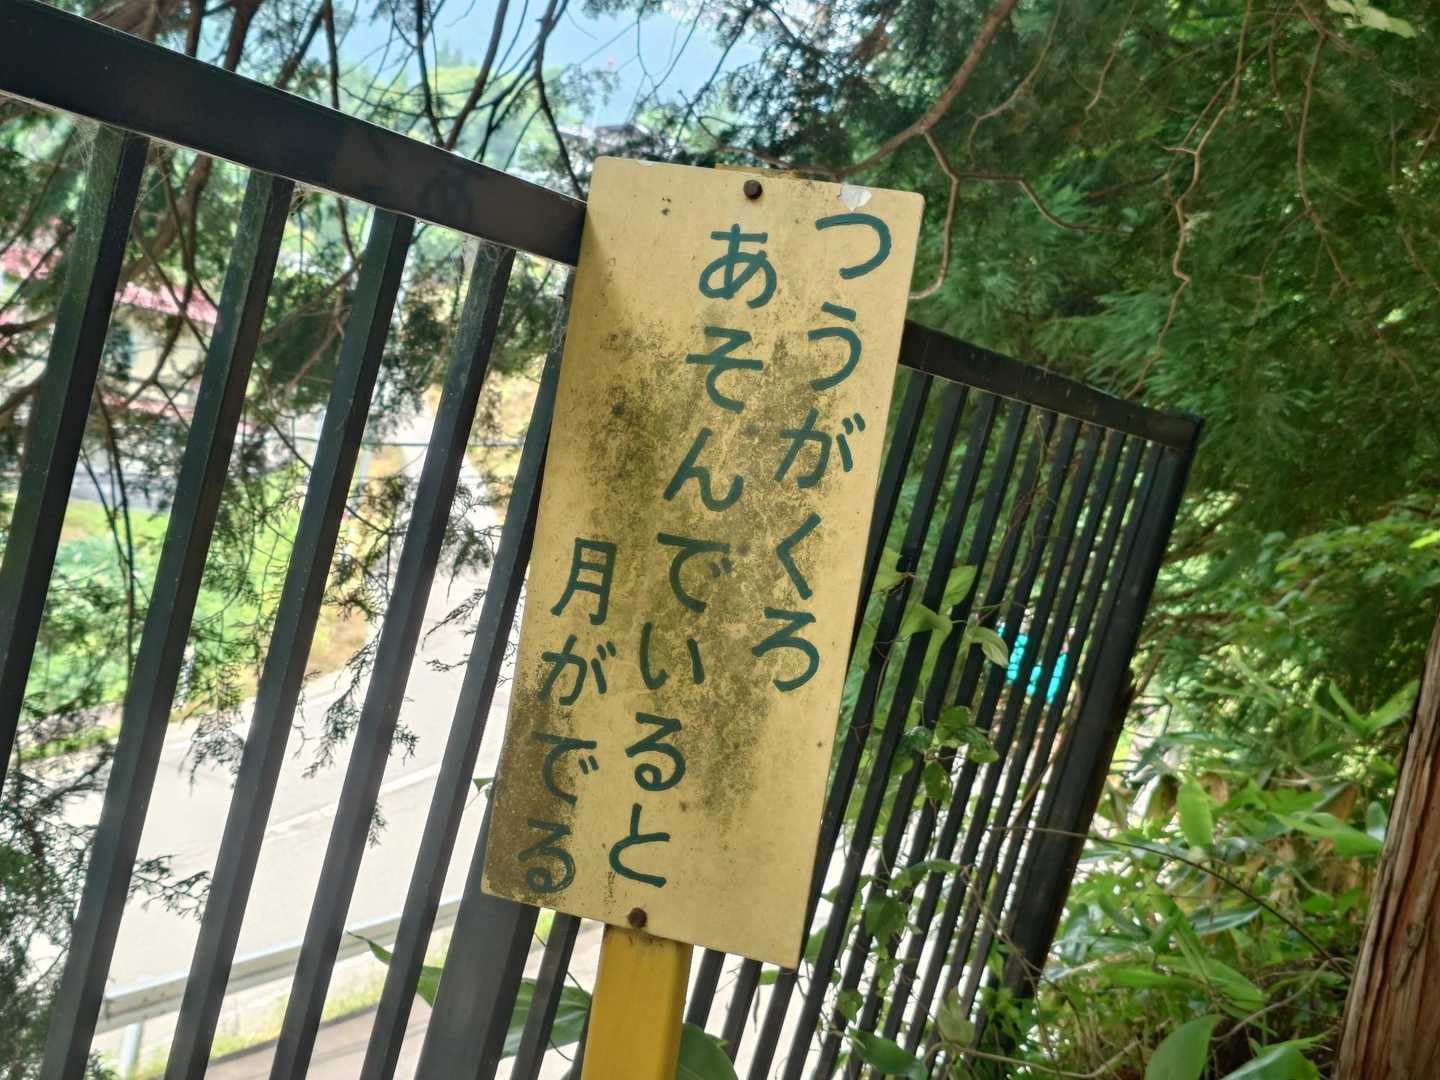 つうがくろ
あそんでいると
月がでる